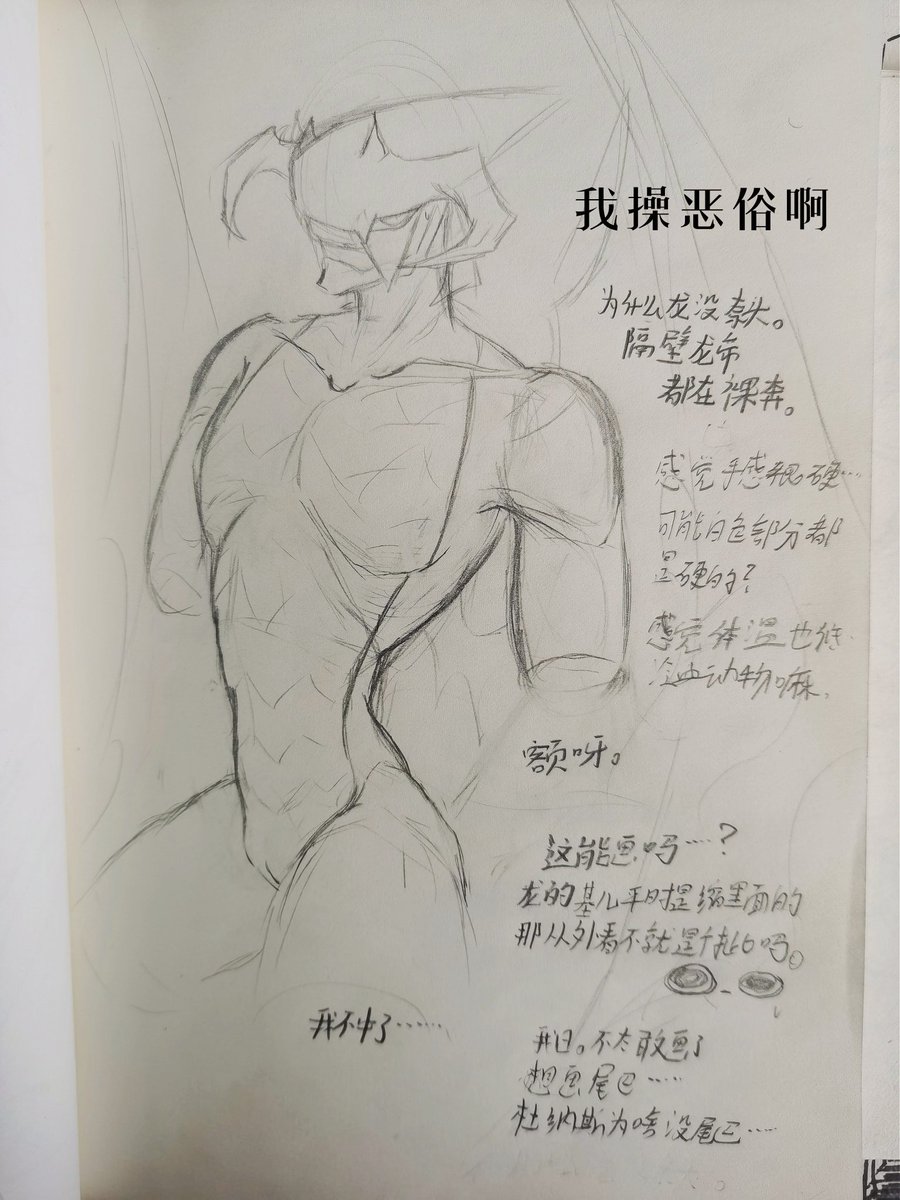 我操恶俗啊
为什么龙没奈头。
隔壁龙帝
都在裸奔。
感觉手感很硬……
可能白色部分都
是硬的?
感觉体温也低
冷血动物嘛,
额呀。
这能画吗……?
龙的基儿平时是缩里面的
那从外看不就是个批吗。
我不中了……
我日。不太敢画了
想画尾巴……
杜纳斯为啥没尾巴……